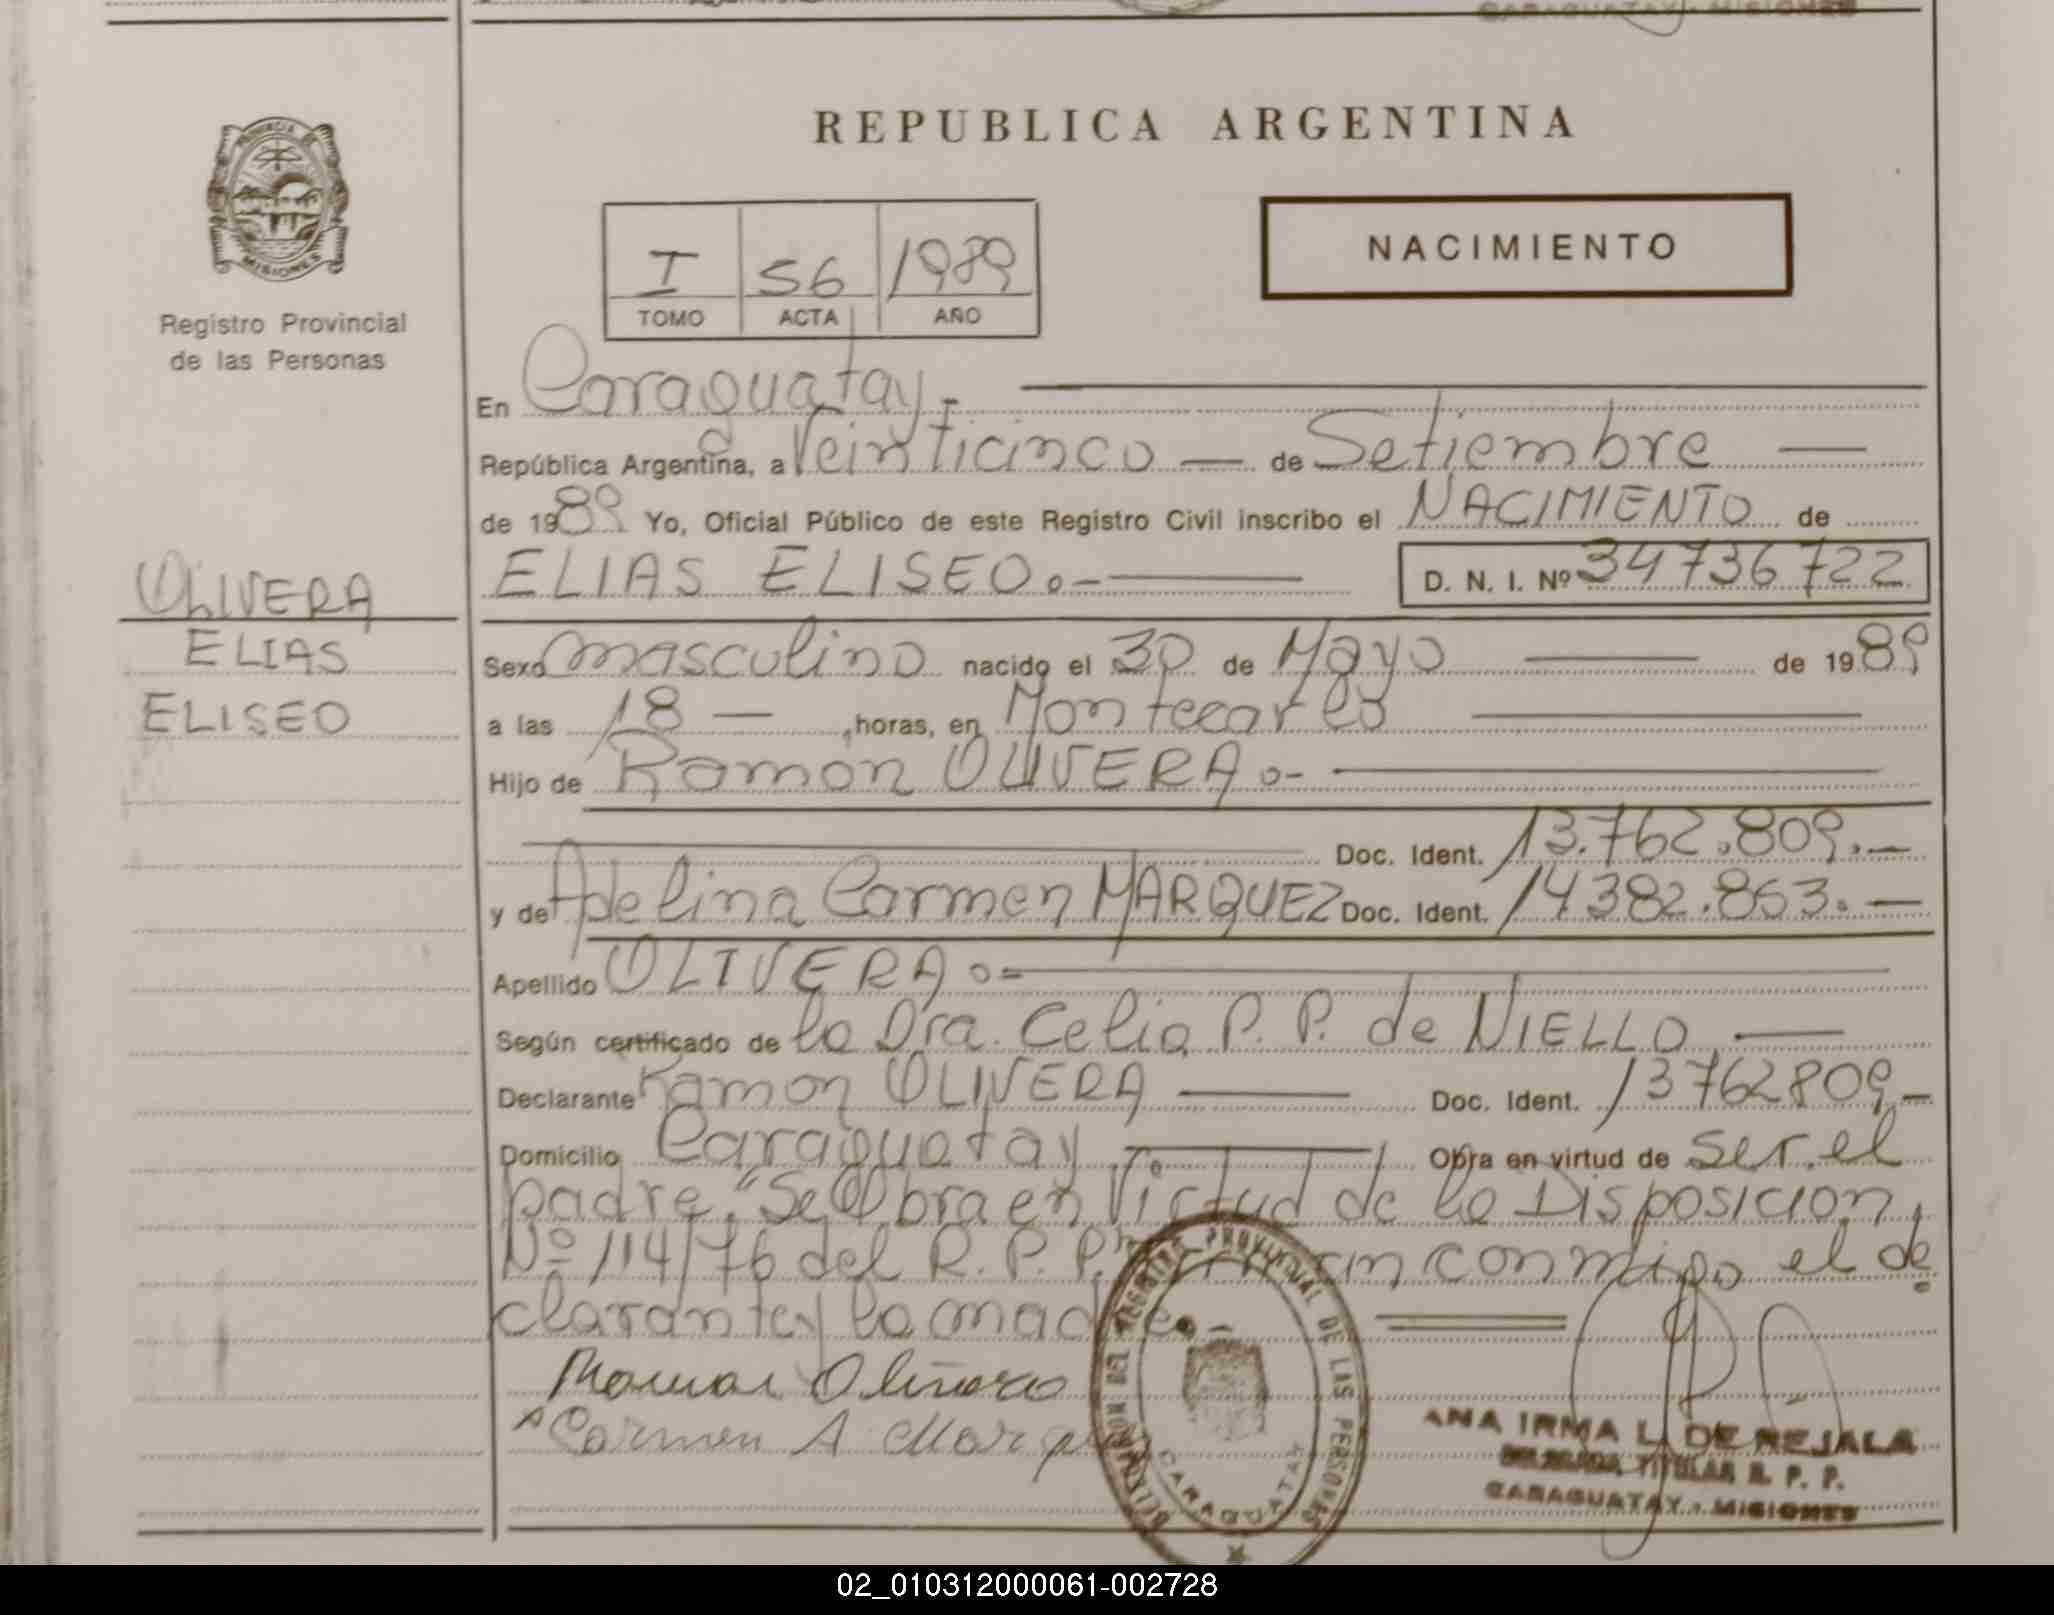 CARAGUATAY - MISIONES
PROVINCIA DE
MISIONES
Registro Provincial
de las Personas
REPUBLICA ARGENTINA
I 56 1989
TOMO ACTA AÑO
NACIMIENTO
En Caraguatay.-
República Argentina, a Veinticinco — de Setiembre —
de 1989 Yo, Oficial Público de este Registro Civil inscribo el NACIMIENTO de
ELIAS ELISEO.- D. N. I. Nº 34736722
OLIVERA
ELIAS
ELISEO
Sexo masculino nacido el 30 de Mayo — de 1989
a las 18 — , horas, en Montecarlo —
Hijo de Ramon OLIVERA.-
Doc. Ident. 13.762.809.—
y de Adelina Carmen MARQUEZ Doc. Ident. 14382.863.—
Apellido OLIVERA.-
Según certificado de la Dra. Celia P. P. de NIELLO —
Declarante Ramon OLIVERA — Doc. Ident. 13762809.-
Domicilio Caraguatay — Obra en virtud de ser el
padre. "Se Obra en Virtud de la Disposicion
Nº 114/76 del R. P. P." conmigo el de
clarante y la madre.-
Ramon Olivera
Carmen A Marq
REGISTRO PROVINCIAL DE LAS PERSONAS
CARAGUATAY
ANA IRMA L. DE REJALA
DELEGADA TITULAR R. P. P.
CARAGUATAY - MISIONES
02_010312000061-002728